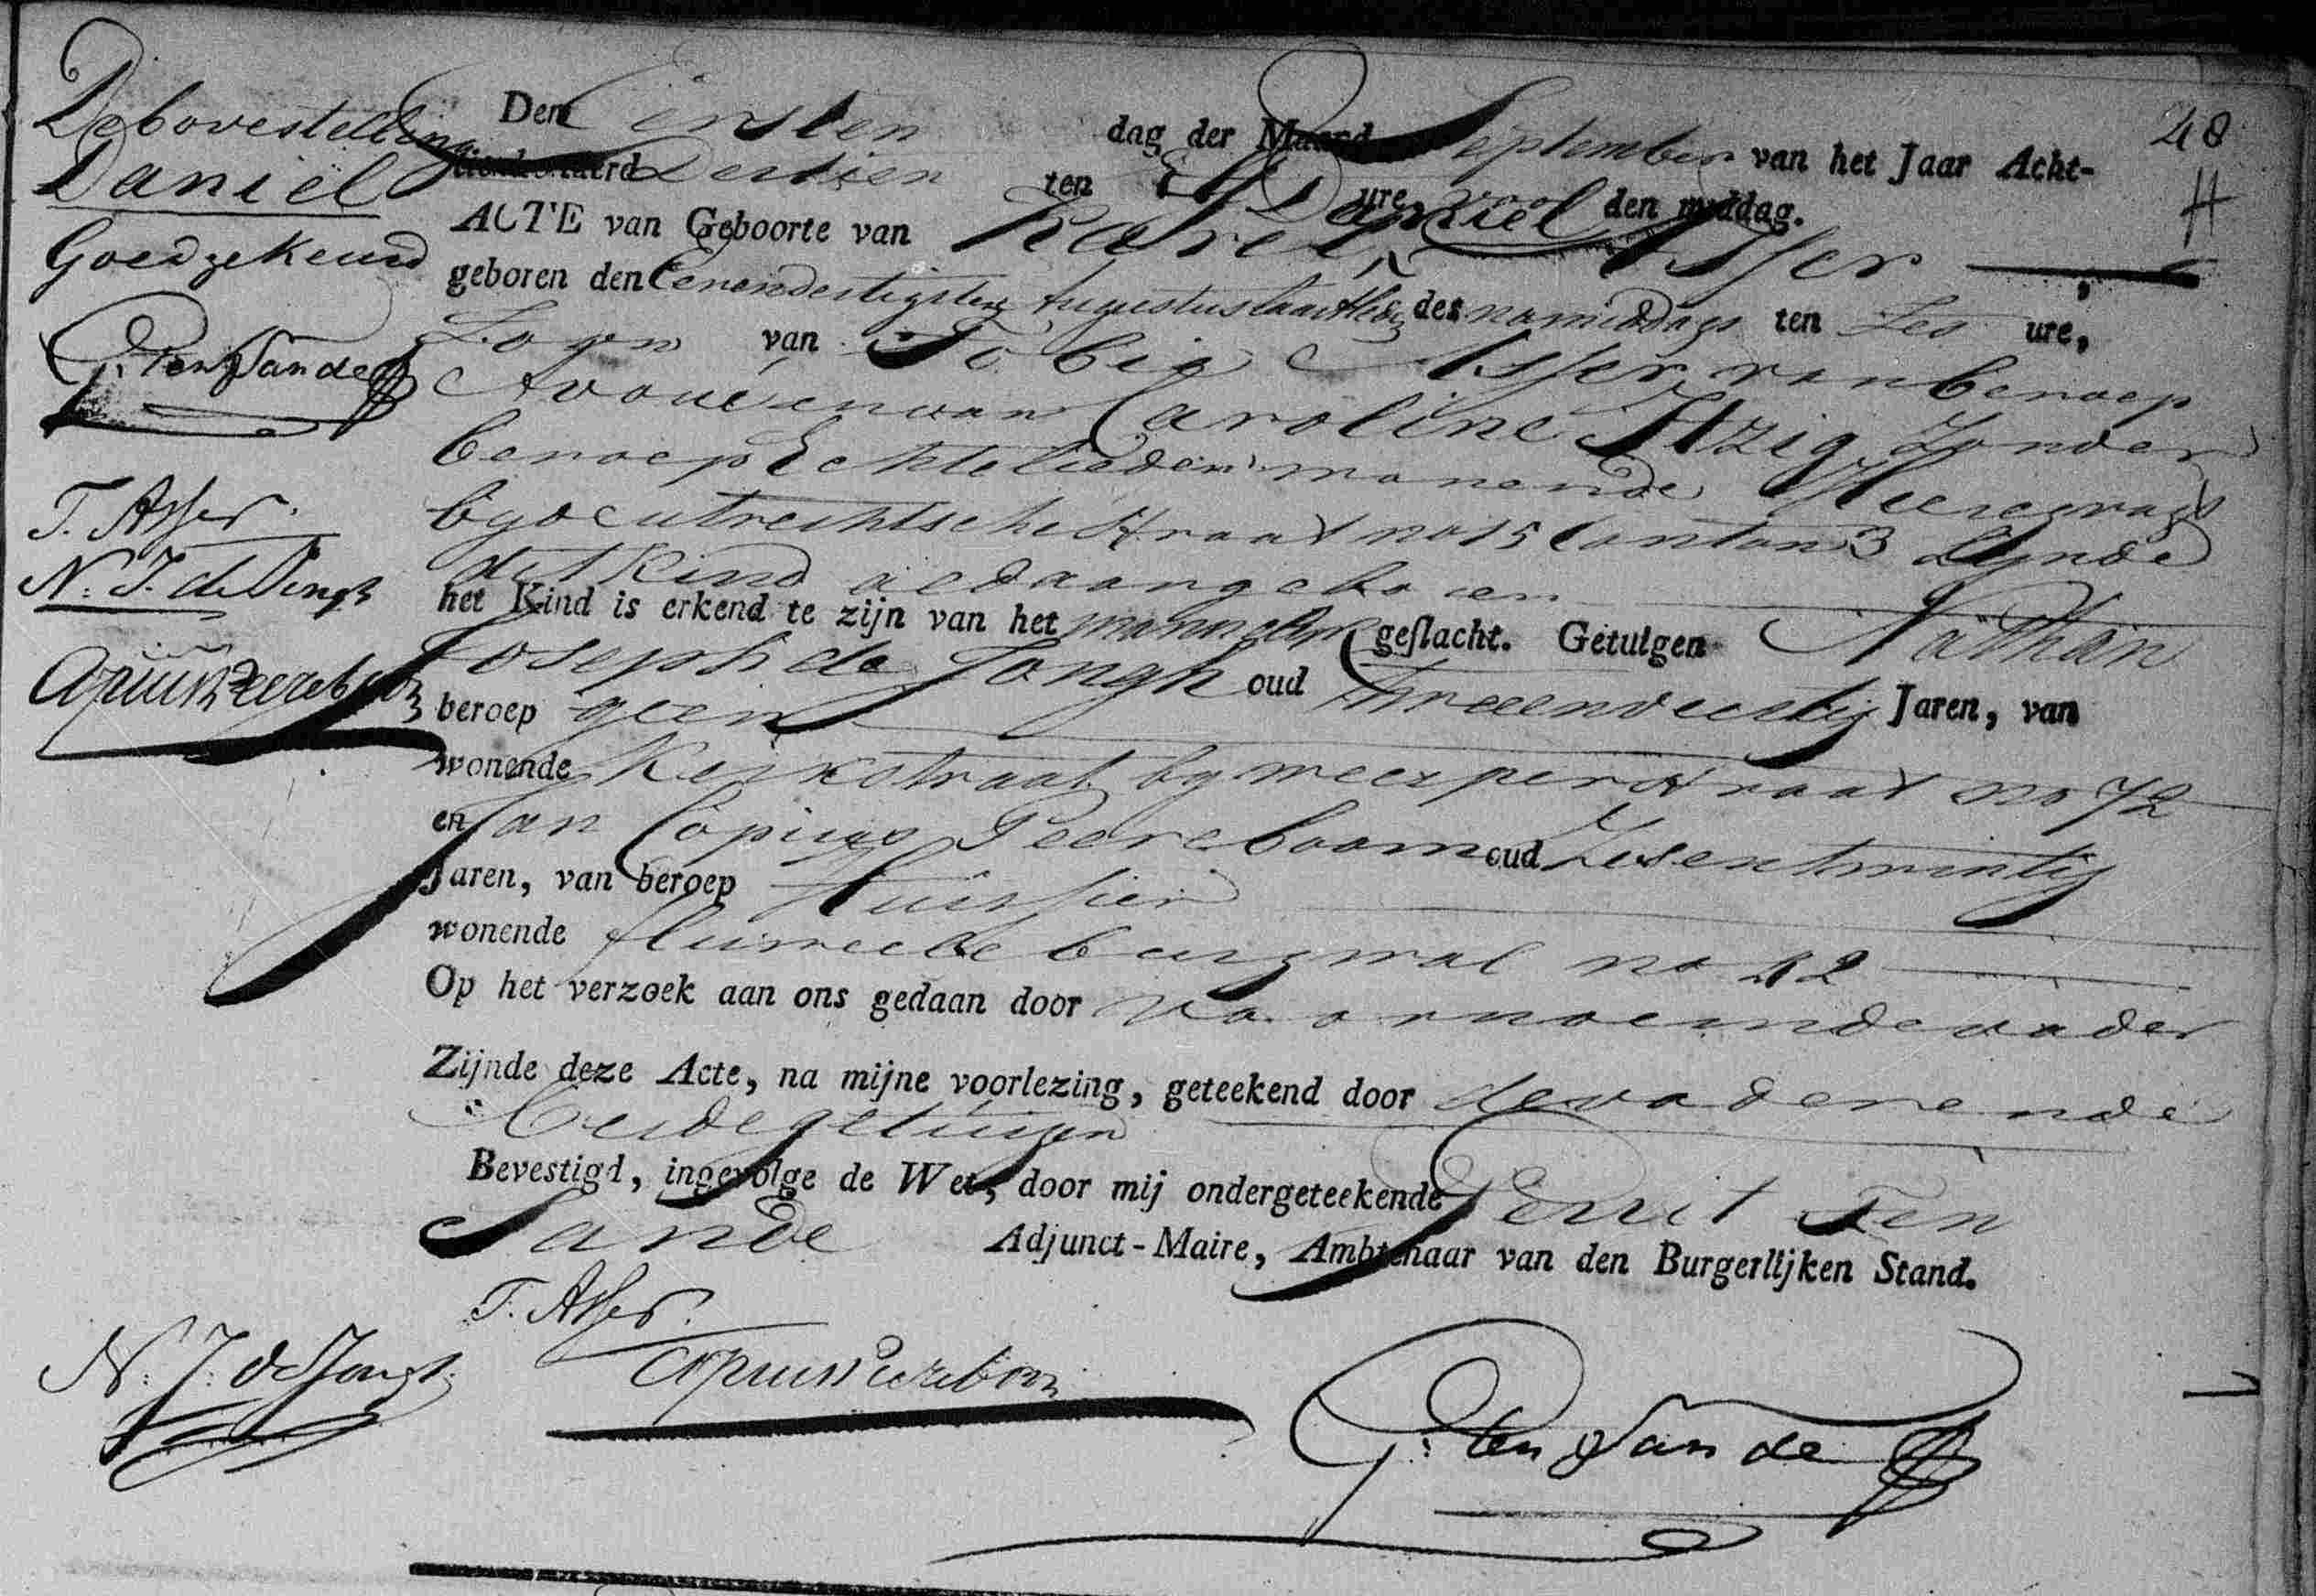 De bovestelling
Daniel
Goedgekeurd
G: ten Sande
T. Asser.
N: J. de Jongh
Den Eersten dag der Maand September van het Jaar Acht-
tienhonderd Dertien ten Elf ure voor den middag.
48
H
ACTE van Geboorte van Karel Daniel Asser,
geboren den Eenendertigsten Augustus laastleden des namiddags ten Zes ure,
Zoon van Tobia Asser, van beroep
Avoué en van Caroline Itzig Zonder
beroep Echtelieden wonende Heeregragt
by de utrechtsche straat no 15 Canton 3 Zynde
dit Kind aldaar geboren
het Kind is erkend te zijn van het mannelyk geslacht. Getuigen Nathan
Joseph de Jongh oud Tweeendertig Jaren, van
beroep geen
wonende Kerkstraat by weesperstraat no 72
en Jan Copius Peereboom oud Zesentwintig
Jaren, van beroep Huissier
wonende fluweele burgwal no 42
Op het verzoek aan ons gedaan door voornoemde vader
Zijnde deze Acte, na mijne voorlezing, geteekend door de vader en de
beide getuigen
Bevestigd, ingevolge de Wet, door mij ondergeteekende Gerrit Ten
Sande Adjunct-Maire, Ambtenaar van den Burgerlijken Stand.
T. Asser.
N: J: de Jongh
Copius Peereboom
G: ten Sande